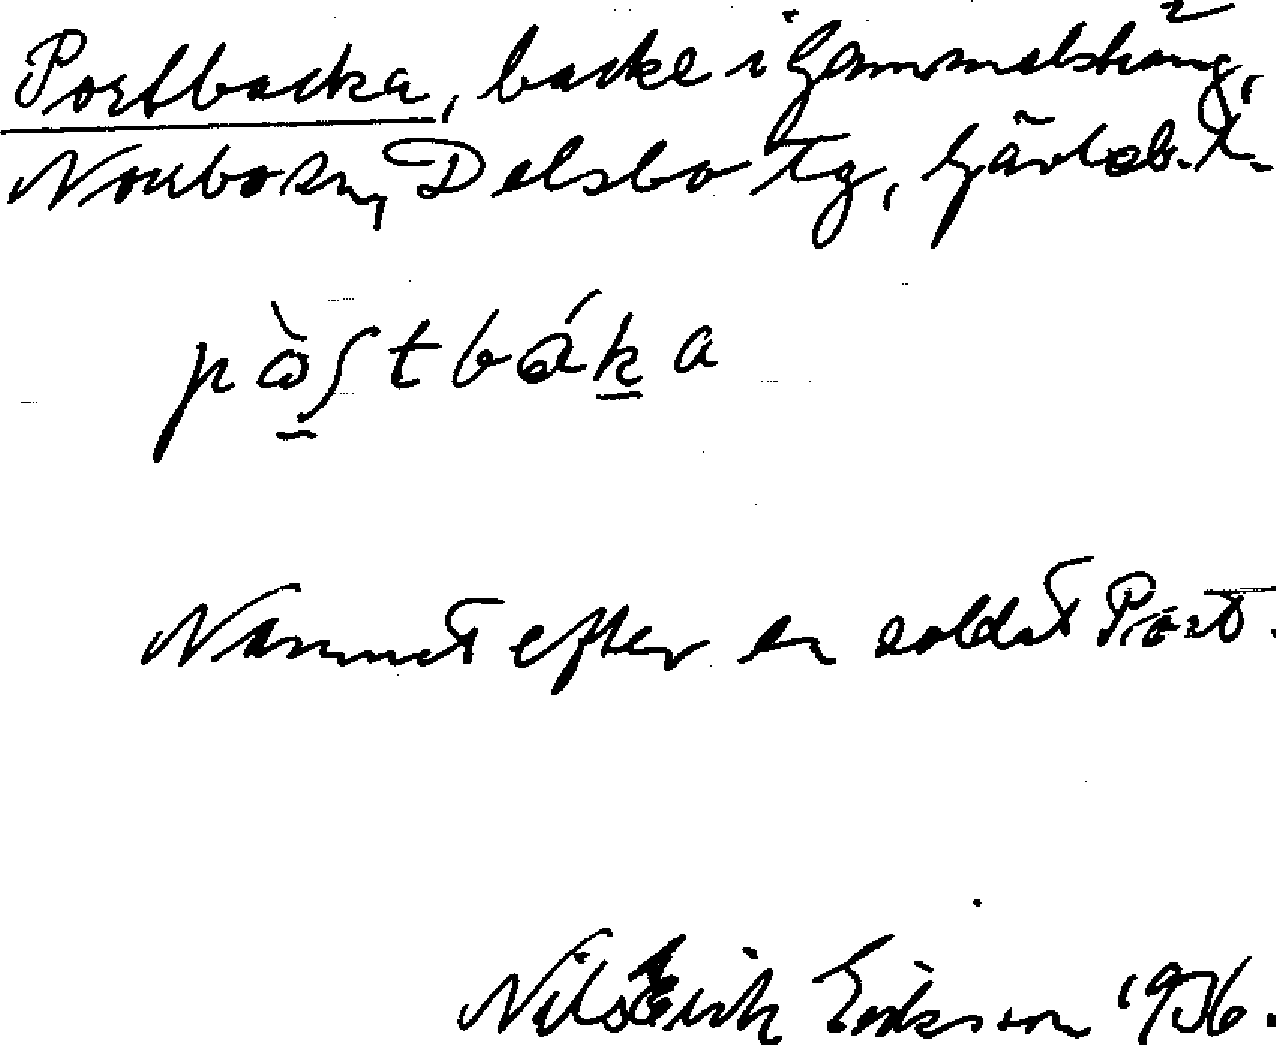 Postbacka, backe i Gammelsträng,
Norrbo sn, Delsbo tg, Gävleb. l.
pòstbáka
Namnet efter en soldat Post.
Nils Erik Eriksson 1936.